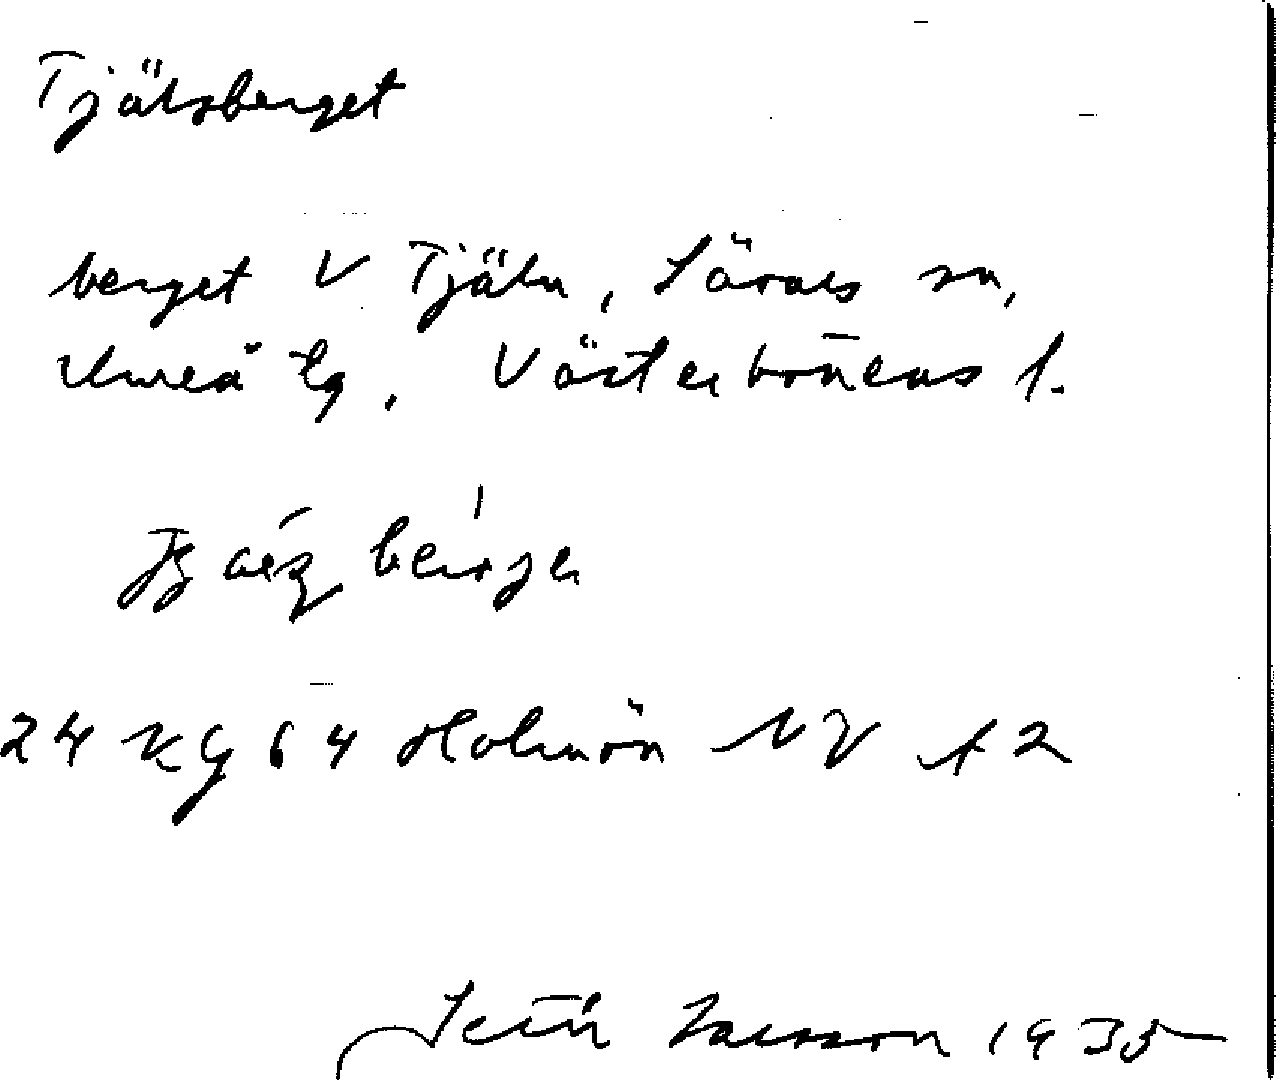 Tjälsberget
berget V Tjäln, Sävars sn,
Umeå tg, Västerbottens l.
berge
24 Kg 64 Holmön NV f2
Seth Larsson 1935